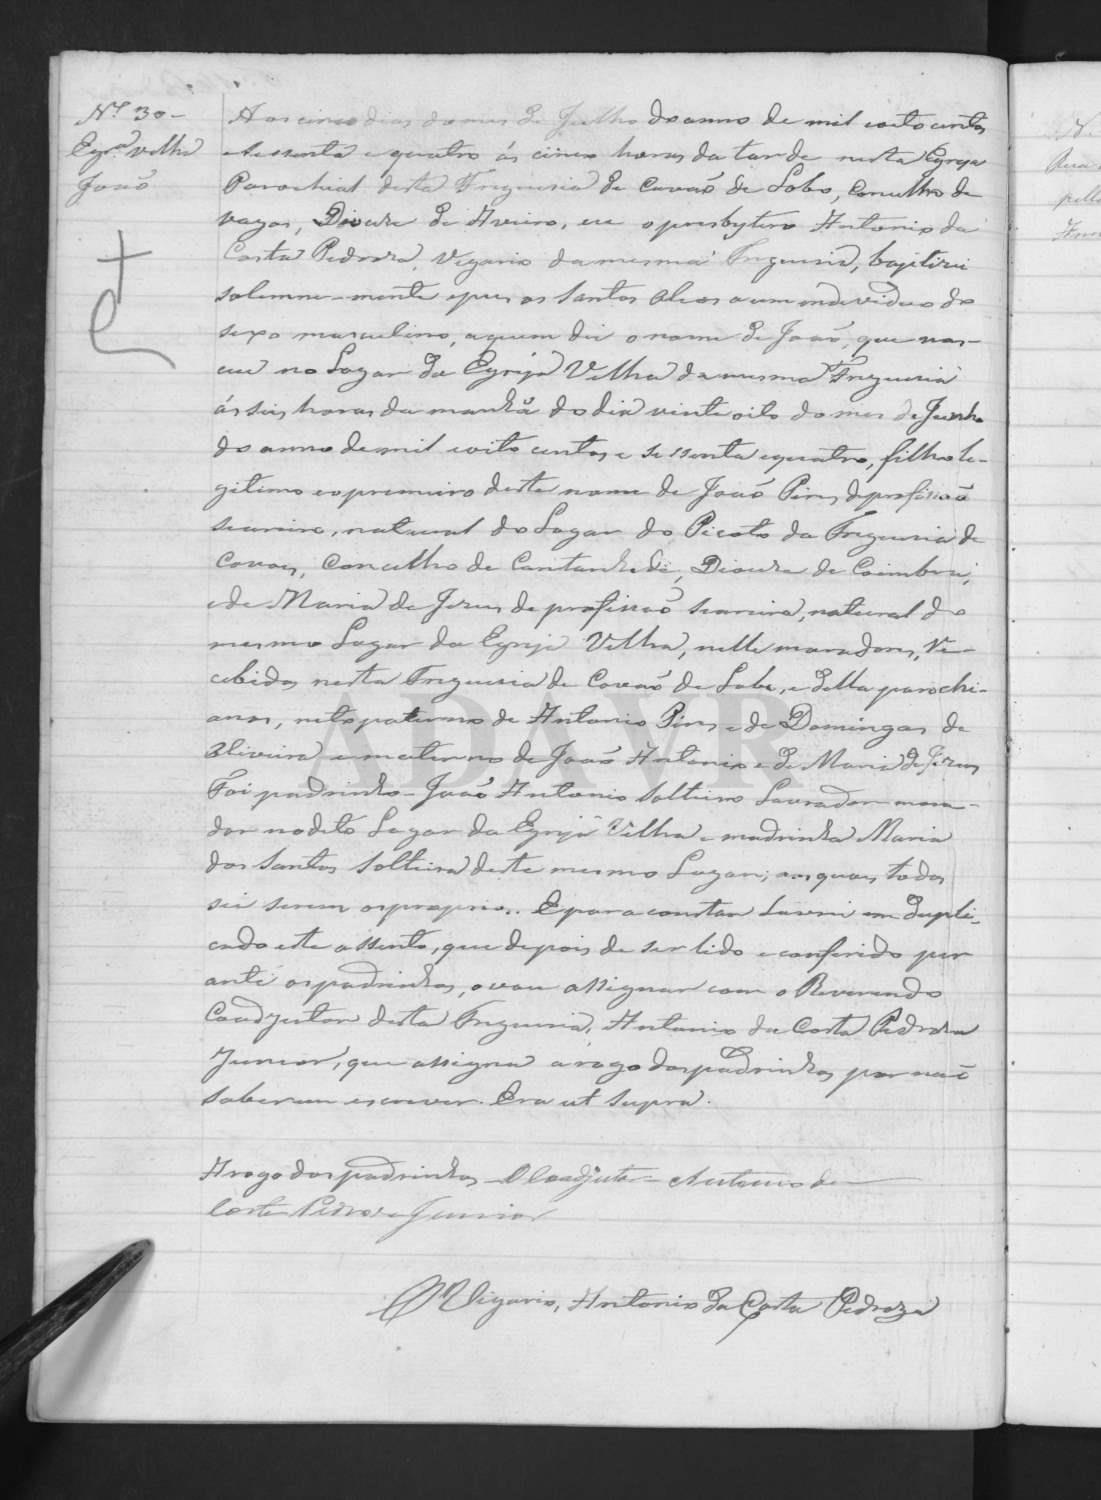 Nº 30 -
Egrª velha
João
Aos cinco dias do mes de Julho do anno de mil oito centos
e sessenta e quatro ás cinco horas da tarde nesta Egreja
Parochial desta Freguesia de Covaõ de Lobo, Concelho de
vagos, Diocese de Aveiro, eu o presbytero Antonio da
Costa Pedroza, Vigario da mesma Freguesia, baptizei
solemne-mente e pus os Santos Oleos a um individuo do
sexo masculino, a quem dei o nome de João, que nas-
ceu no Lugar da Egreja Velha da mesma Freguesia
ás seis horas da manhã do dia vinte oito do mes de Junho
do anno de mil oito centos e sessenta e quatro, filho le-
gitimo e o premeiro deste nome de João Pires, de profissaõ
seareiro, natural do Lugar do Picoto da Freguesia de
Covoes, Concelho de Cantanhede, Diocese de Coimbra,
e de Maria de Jesus de profissaõ seareira, natural do
mesmo Lugar da Egreja Velha, nelle moradores, Re-
cebidos nesta Freguesia de Covaõ de Lobo, e della parochi-
anos, neto paterno de Antonio Pires e de Domingas de
Oliveira e materno de João Antonio e de Maria de Jesus
Foi padrinho - João Antonio solteiro Lavrador mora-
dor no dito Lugar da Egreja Velha e madrinha Maria
dos Santos solteira deste mesmo Lugar; os quaes todos
sei serem os proprios. E para constar lavrei em dupli-
cado este assento, que depois de ser lido e conferido per
ante os padrinhos, o vou assignar com o Reverendo
Coadjutor desta Freguesia, Antonio da Costa Pedroza
Junior, que assigna a rogo dos padrinhos por naõ
saberem escrever. Era ut supra.
A rogo dos padrinhos - O Coadjutor - Antonio da
Costa Pedroza Junior
O Vigario, Antonio da Costa Pedroza
ADAVR